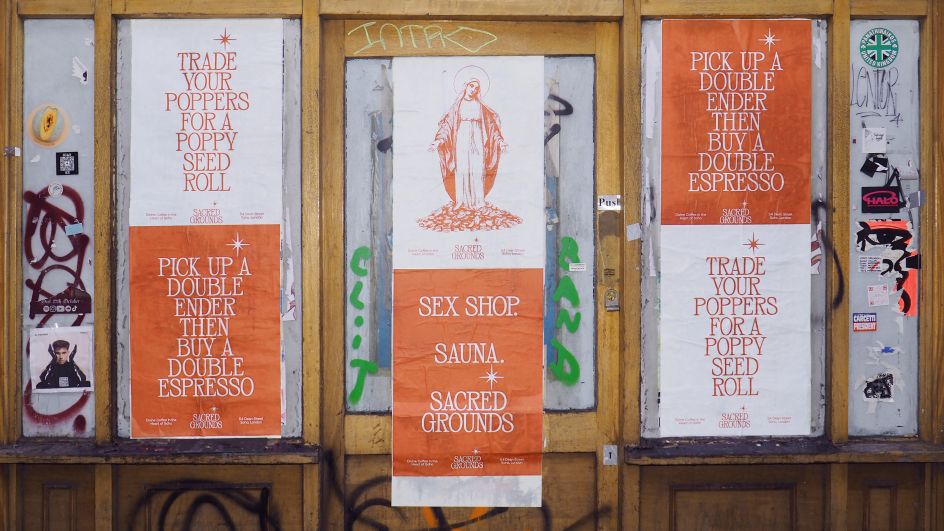 TRADE
YOUR
POPPERS
FOR A
POPPY
SEED
ROLL
Divine Coffee in the
Heart of Soho
SACRED
GROUNDS
54 Dean Street
Soho, London
PICK UP A
DOUBLE
ENDER
THEN
BUY A
DOUBLE
ESPRESSO
Divine Coffee in the
Heart of Soho
SACRED
GROUNDS
54 Dean Street
Soho, London
INTRO
Divine Coffee in the
Heart of Soho
SACRED
GROUNDS
54 Dean Street
Soho, London
SEX SHOP.
SAUNA.
SACRED
GROUNDS
Divine Coffee in the
Heart of Soho
SACRED
GROUNDS
54 Dean Street
Soho, London
Push
PICK UP A
DOUBLE
ENDER
THEN
BUY A
DOUBLE
ESPRESSO
Divine Coffee in the
Heart of Soho
SACRED
GROUNDS
54 Dean Street
Soho, London
TRADE
YOUR
POPPERS
FOR A
POPPY
SEED
ROLL
Divine Coffee in the
Heart of Soho
SACRED
GROUNDS
54 Dean Street
Soho, London
PANATHINAIKOS
UNITED KINGDOM
HALO
CARCETTI
PRESIDENT